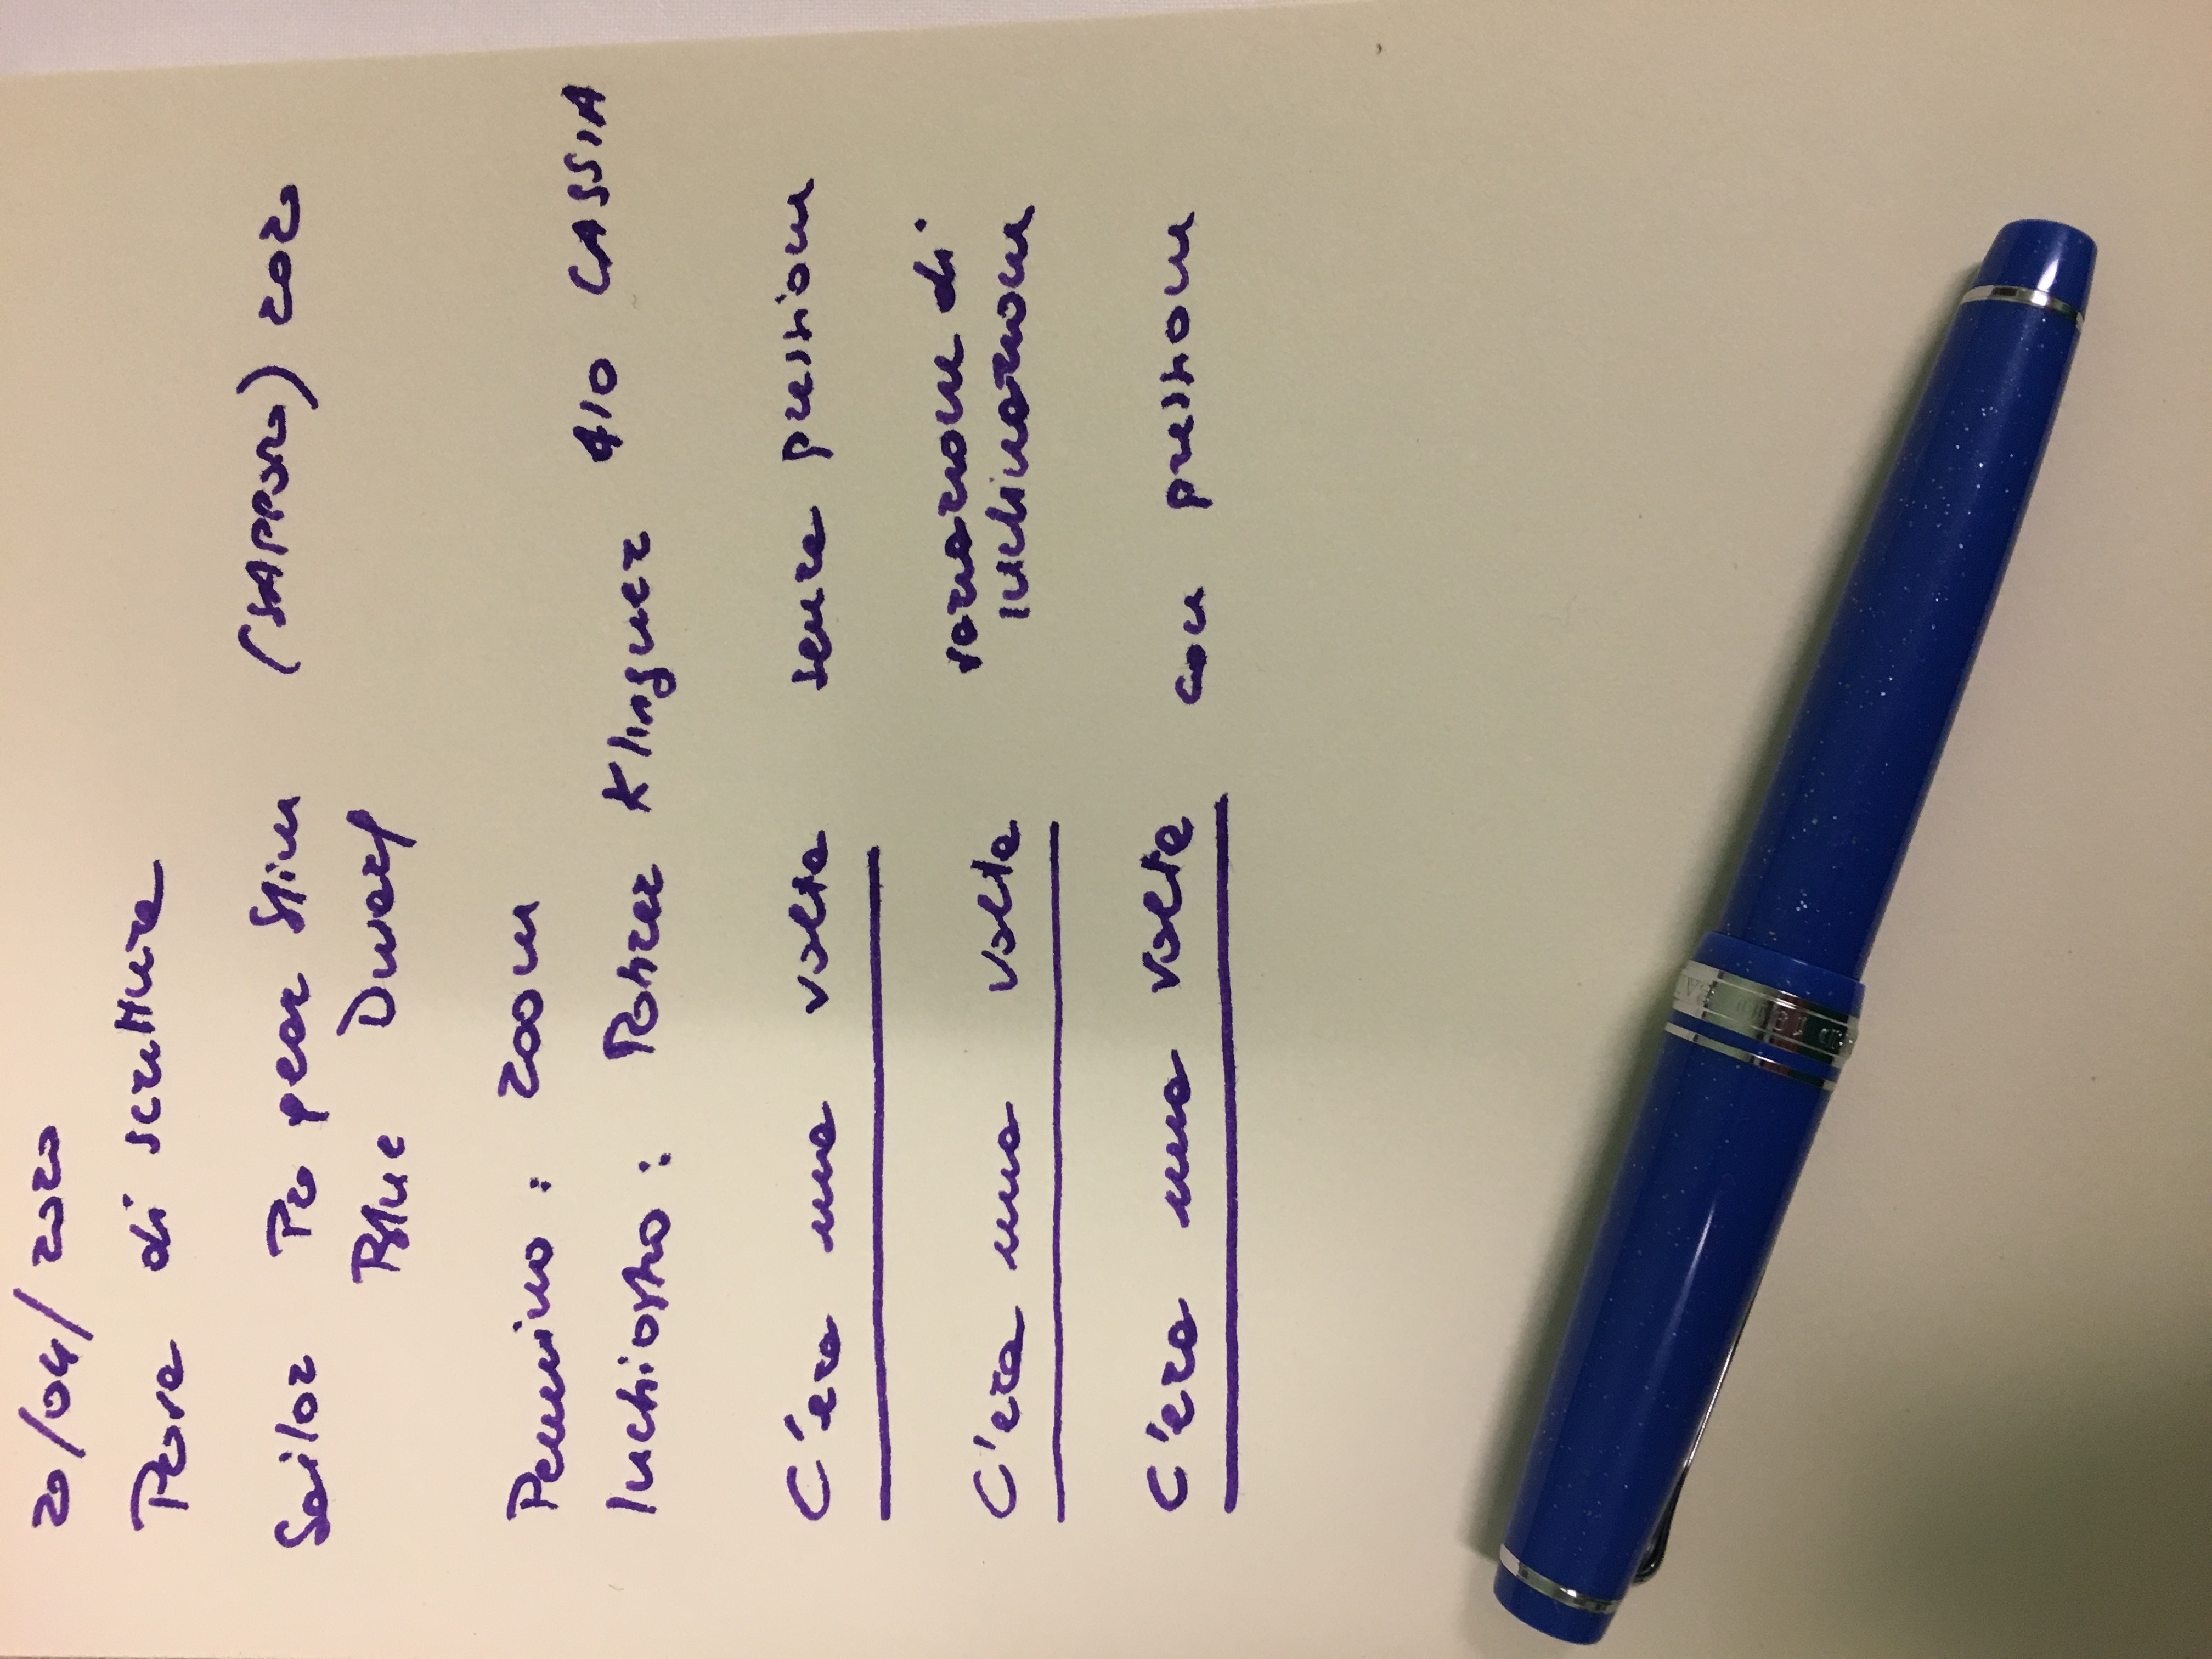 20/04/2020
Prova di scrittura
Sailor Pro gear Slim (SAPPORO) 202
Blue Dwarf
Pennino: zoom
Inchiostro: Rohrer Klingner 410 CASSIA
C'era una volta senza pression
C'era una volta variazione di
inclinazione
C'era una volta con pression